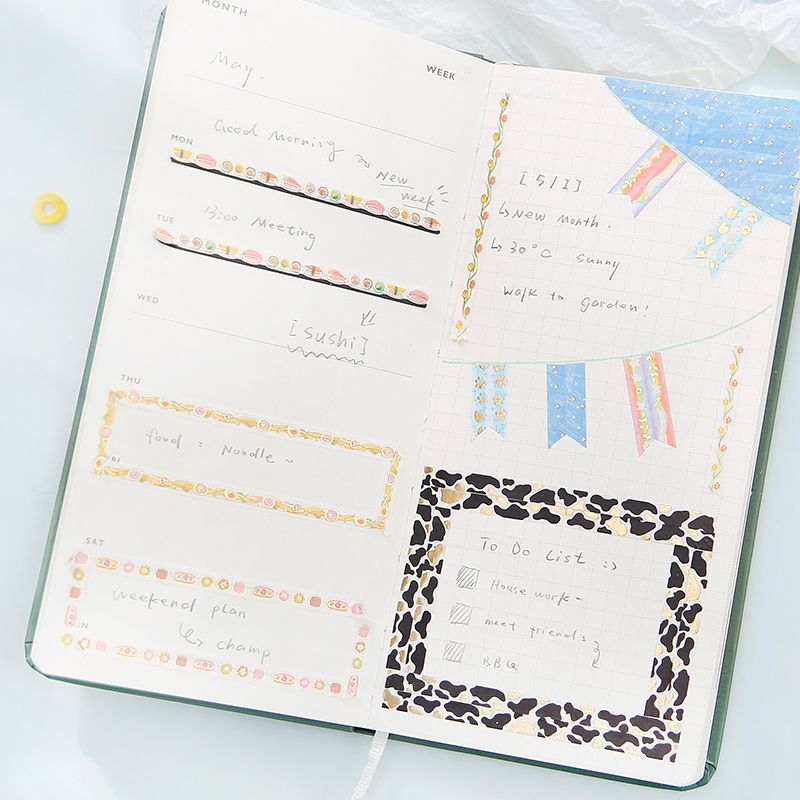 MONTH
WEEK
May.
Good Morning
MON
New
week
TUE
13:00 Meeting
WED
[sushi]
THU
food = Noodle ~
FRI
SAT
weekend plan
↳ champ
[5/1]
↳ New month.
↳ 30°C sunny
walk to garden!
To Do List :)
House work~
meet friends
BBQ